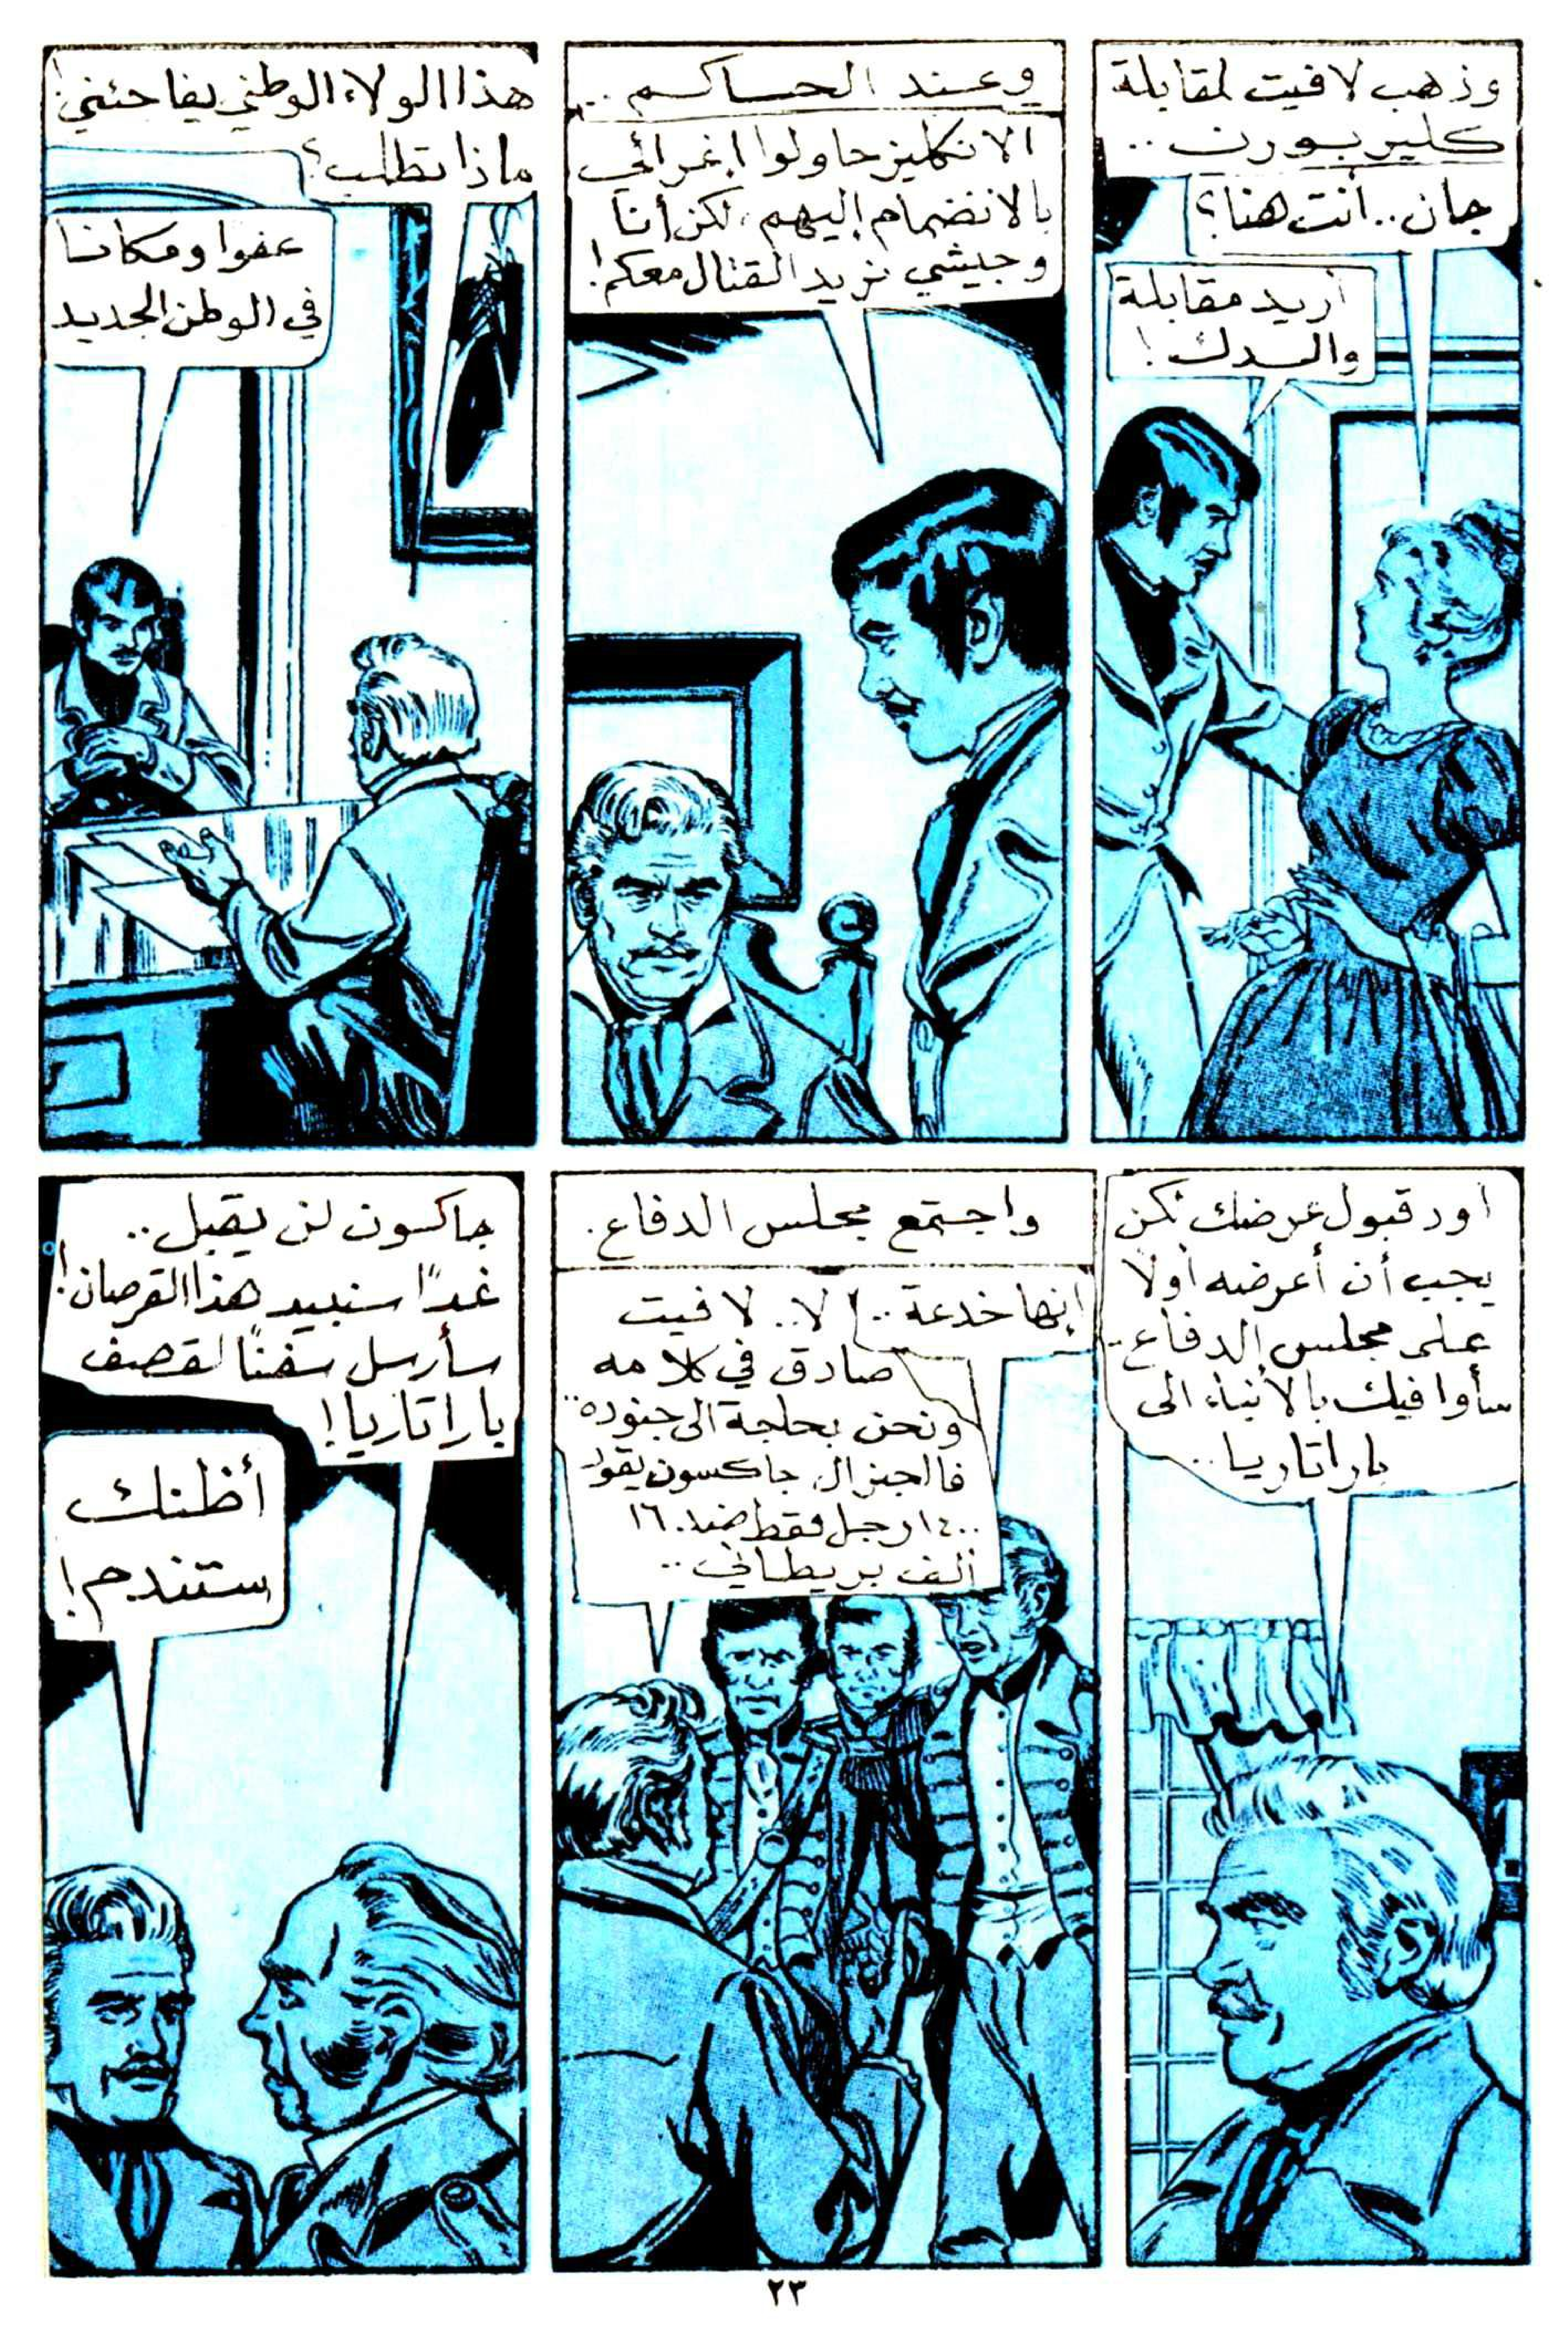 وذهب لافيت لمقابلة
كليربورن ..
جان .. أنت هنا؟
أريد مقابلة
والدك !
وعند الحاكم ..
الانكليز حاولوا إغرائي
بالانضمام إليهم ، لكن أنا
وجيشي نريد القتال معكم !
هذا الولاء الوطني يفاجئني !
ماذا تطلب ؟
عفوا ومكانا
في الوطن الجديد
أود قبول عرضك لكن
يجب أن أعرضه أولا
على مجلس الدفاع ..
سأوافيك بالأنباء الى
باراتاريا ..
واجتمع مجلس الدفاع .
إنها خدعة .. !
لا .. لافيت
صادق في كلامه
ونحن بحاجة الى جنوده ..
فالجنرال جاكسون يقود
١٤٠٠ رجل فقط ضد ١٦
ألف بريطاني ..
جاكسون لن يقبل ..
غدًا سنبيد هذا القرصان !
سأرسل سفنًا لقصف
باراتاريا !
أظنك
ستندم !
٢٣